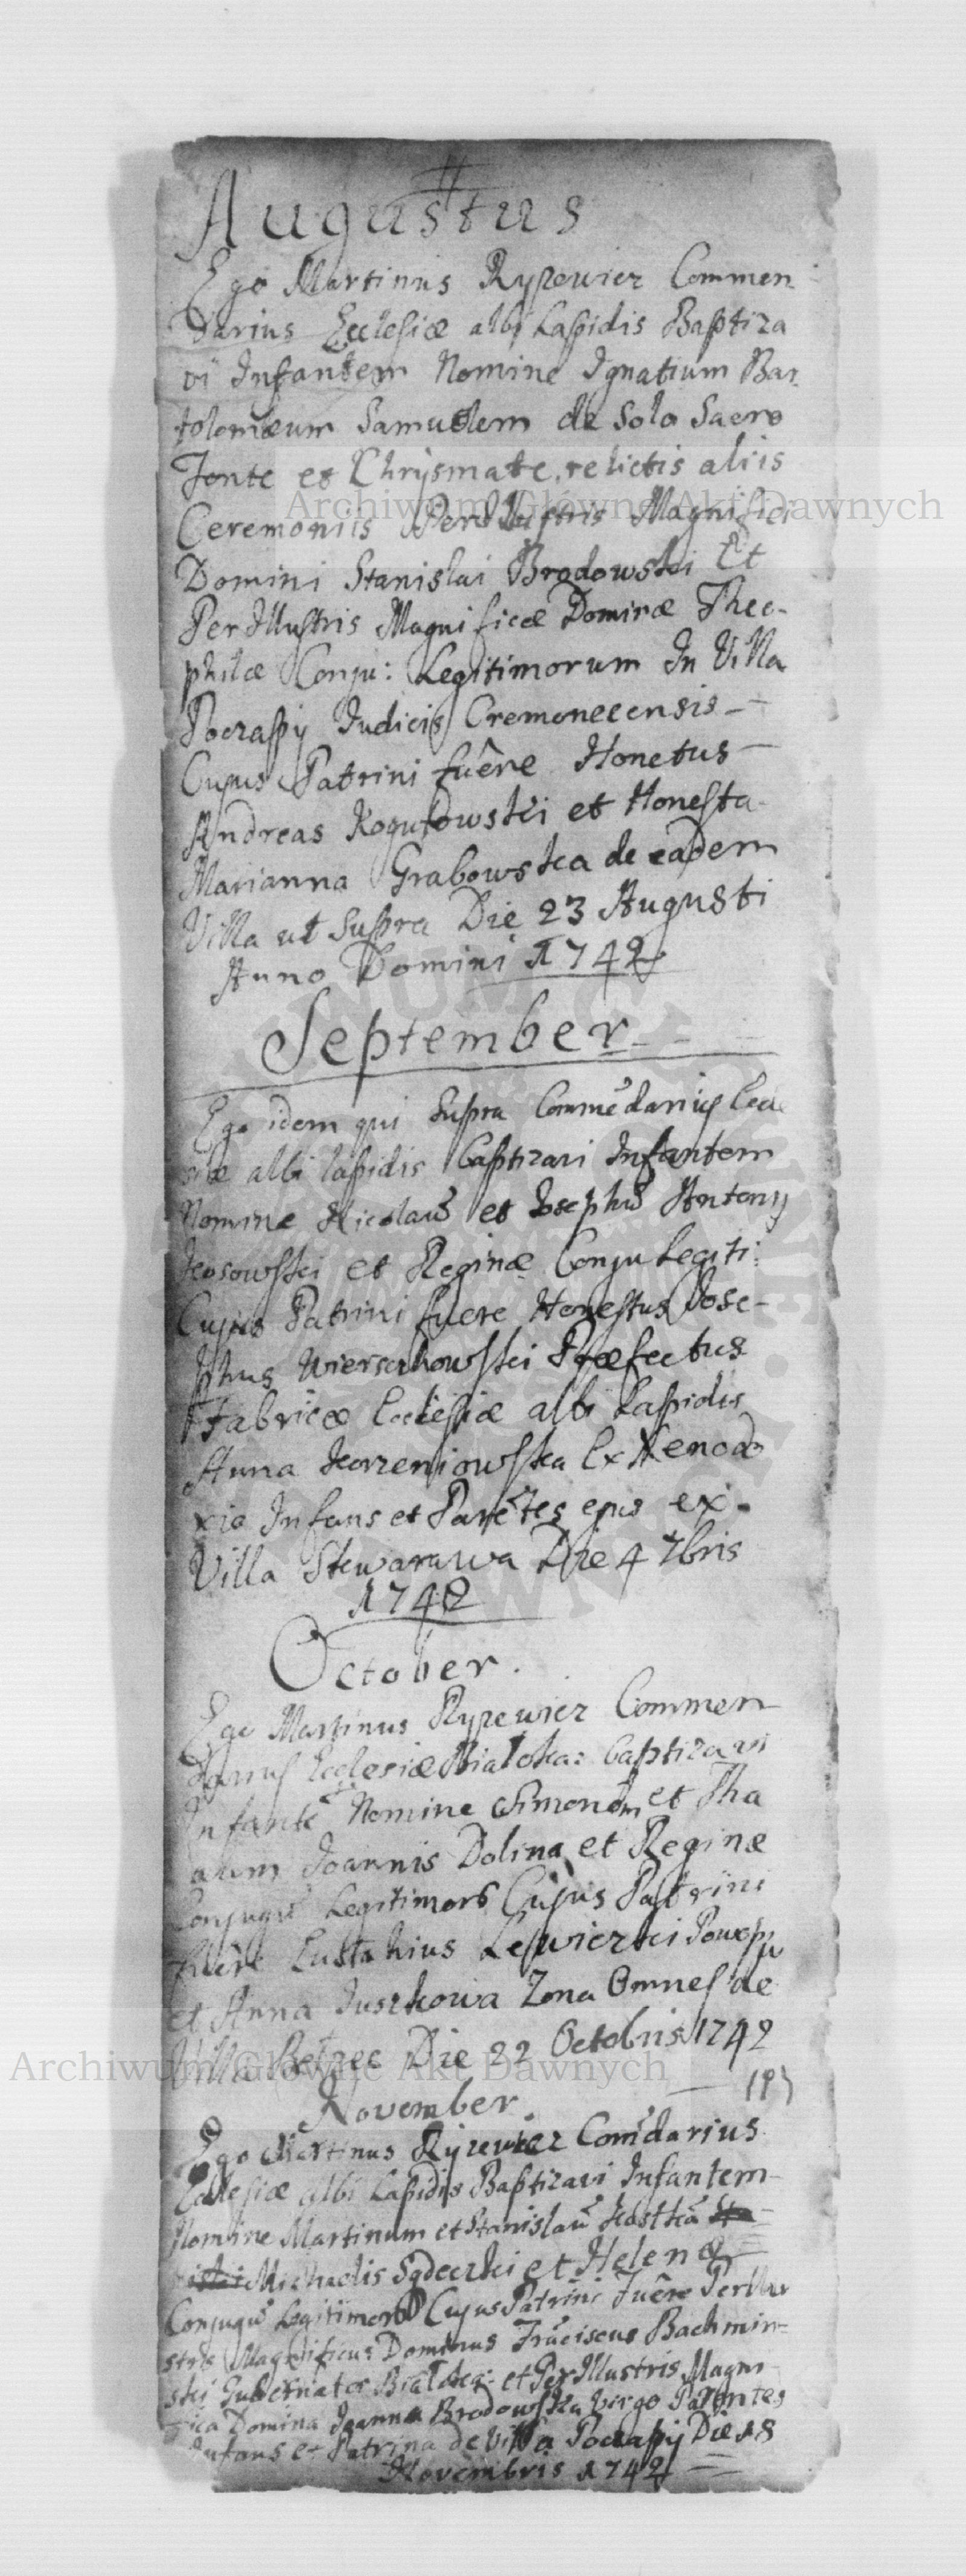 Augustus
Ego Martinus Rypewicz Commen
darius Ecclesiæ albi Lapidis Baptiza
vi Infantem Nomine Ignatium Bar
tolomæum Samuelem de Solo Sacro
Fonte et Chrysmate, relictis aliis
Archiwum Główne Akt Dawnych
Ceremoniis Perillustris Magnifici
Domini Stanislai Brodowski Et
Per Illustris Magnificæ Dominæ Theo-
philæ Conju: Legitimorum In Villa
Pocrapy Judicis Cremenecensis -
Cujus Patrini fuêre Honetus
Andreas et Honesta
Marianna Grabowska de eadem
Villa ut Supra Die 23 Augusti
Anno Domini 1742
September
Ego idem qui Supra Commēdarius Eccle
siæ albi lapidis baptizavi Infantem
Nomine Nicolaū et Josephū Antony
et Reginæ Conju Legiti:
Cujus Patrini fuere Honestus Jose-
phus Præfectus
Fabricæ Ecclesiæ albi Lapidis
Anna Korzeniowska Ex Xenodo
xio Infans et Parētes ejus ex
Villa Die 4 7bris
1742
October.
Ego Martinus Rypewicz Commen
darius Ecclesiæ Bialoka: baptizavi
Infantē Nomine Simonem et Tha
Joannis Dolina et Reginæ
Conjugū Legitimorū Cujus Patrini
fuêre
et Anna Juszkowa Zona Omnes de
Villa Die 22 Octobris 1742
Archiwum Główne Akt Dawnych
November.
Ego Martinus Rypewicz Comēdarius
Ecclesiæ albi Lapidis Baptizavi Infantem
Nomine Martinum et Stanislaū Kostkā
Michaelis Sądecki et Helenæ
Conjugū Legitimorū Cujus Patrini Fuêre Perillu
stris Magnificus Dominus Frāciscus Bachmin-
ski Gubernator et Per Illustris Magni
fica Domina Joanna Brodowska Virgo Parentes
Infans et Patrina de Villa Pocrapy Die 18
Novembris 1742